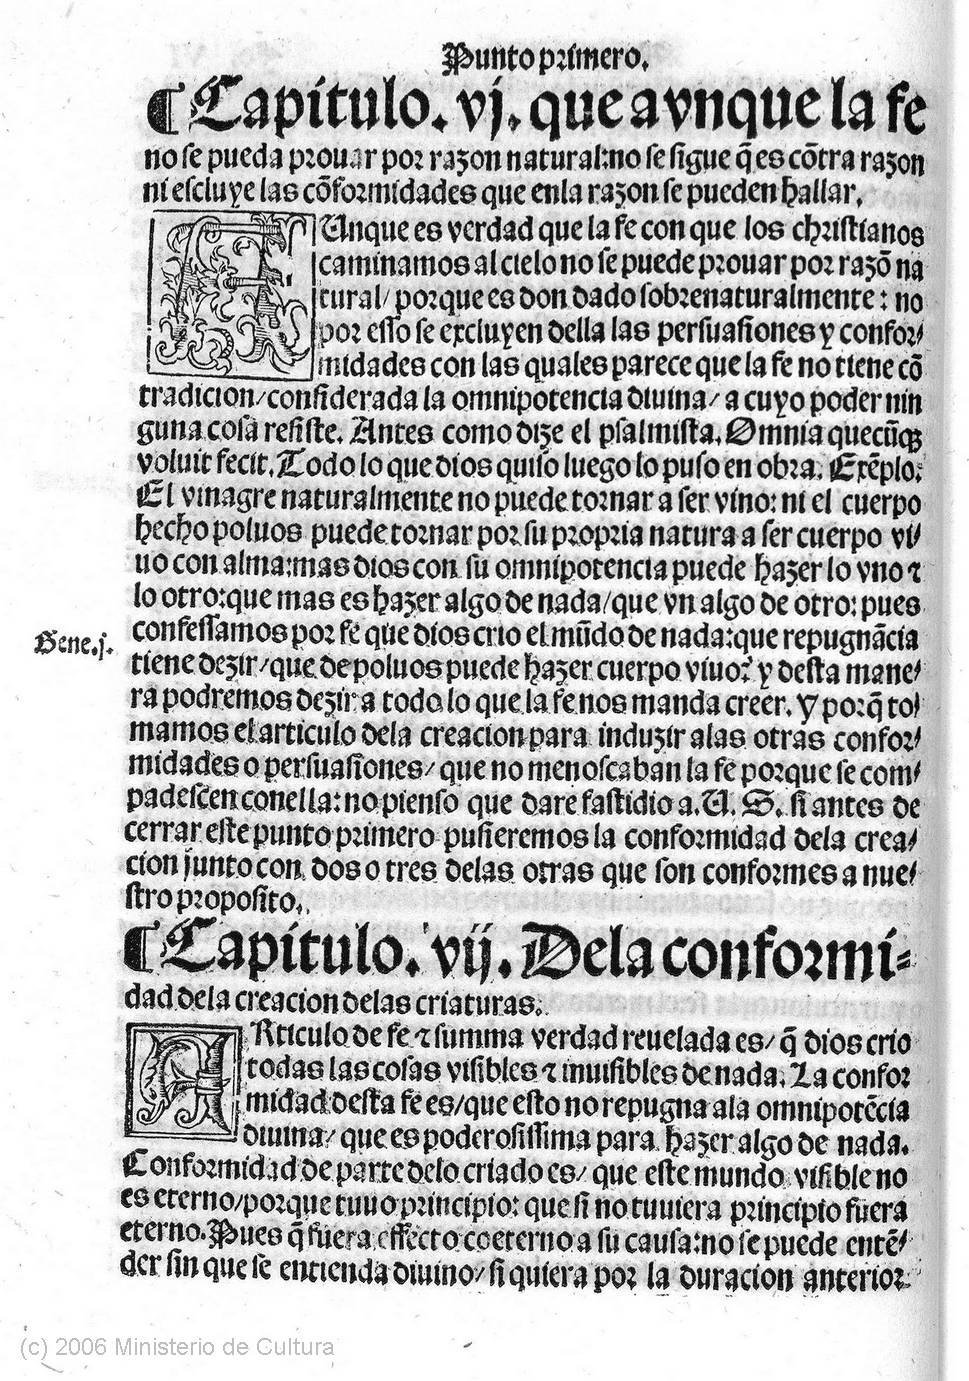 Punto primero.
¶ Capitulo. vj. que avnque la fe
no se pueda prouar por razon natural: no se sigue q̃ es cõtra razon
ni escluye las cõformidades que enla razon se pueden hallar.
AUnque es verdad que la fe con que los christianos
caminamos al cielo no se puede prouar por razõ na
tural/ porque es don dado sobrenaturalmente: no
por esso se excluyen della las persuasiones y confor/
midades con las quales parece que la fe no tiene cõ
tradicion/ considerada la omnipotencia diuina/ a cuyo poder nin
guna cosa resiste. Antes como dize el psalmista. Omnia quecũqꝫ
voluit fecit. Todo lo que dios quiso luego lo puso en obra. Exẽplo.
El vinagre naturalmente no puede tornar a ser vino: ni el cuerpo
hecho poluos puede tornar por su propria natura a ser cuerpo vi/
uo con alma: mas dios con su omnipotencia puede hazer lo vno ⁊
lo otro: que mas es hazer algo de nada/ que vn algo de otro: pues
Gene.j.
confessamos por fe que dios crio el mũdo de nada: que repugnãcia
tiene dezir/ que de poluos puede hazer cuerpo viuo? y desta mane/
ra podremos dezir a todo lo que la fe nos manda creer. Y porq̃ to/
mamos el articulo dela creacion para induzir alas otras confor/
midades o persuasiones/ que no menoscaban la fe porque se com/
padescen conella: no pienso que dare fastidio a. U. S. si antes de
cerrar este punto primero pusieremos la conformidad dela crea/
cion junto con dos o tres delas otras que son conformes a nue/
stro proposito.
¶ Capitulo. vij. Dela conformi-
dad dela creacion delas criaturas.
ARticulo de fe ⁊ summa verdad reuelada es/ q̃ dios crio
todas las cosas visibles ⁊ inuisibles de nada. La confor
midad desta fe es/ que esto no repugna ala omnipotẽcia
diuina/ que es poderosissima para hazer algo de nada.
Conformidad de parte delo criado es/ que este mundo visible no
es eterno/ porque tuuo principio: que si no tuuiera principio fuera
eterno. Pues q̃ fuera effecto coeterno a su causa: no se puede entẽ/
der sin que se entienda diuino/ si quiera por la duracion anterior
(c) 2006 Ministerio de Cultura